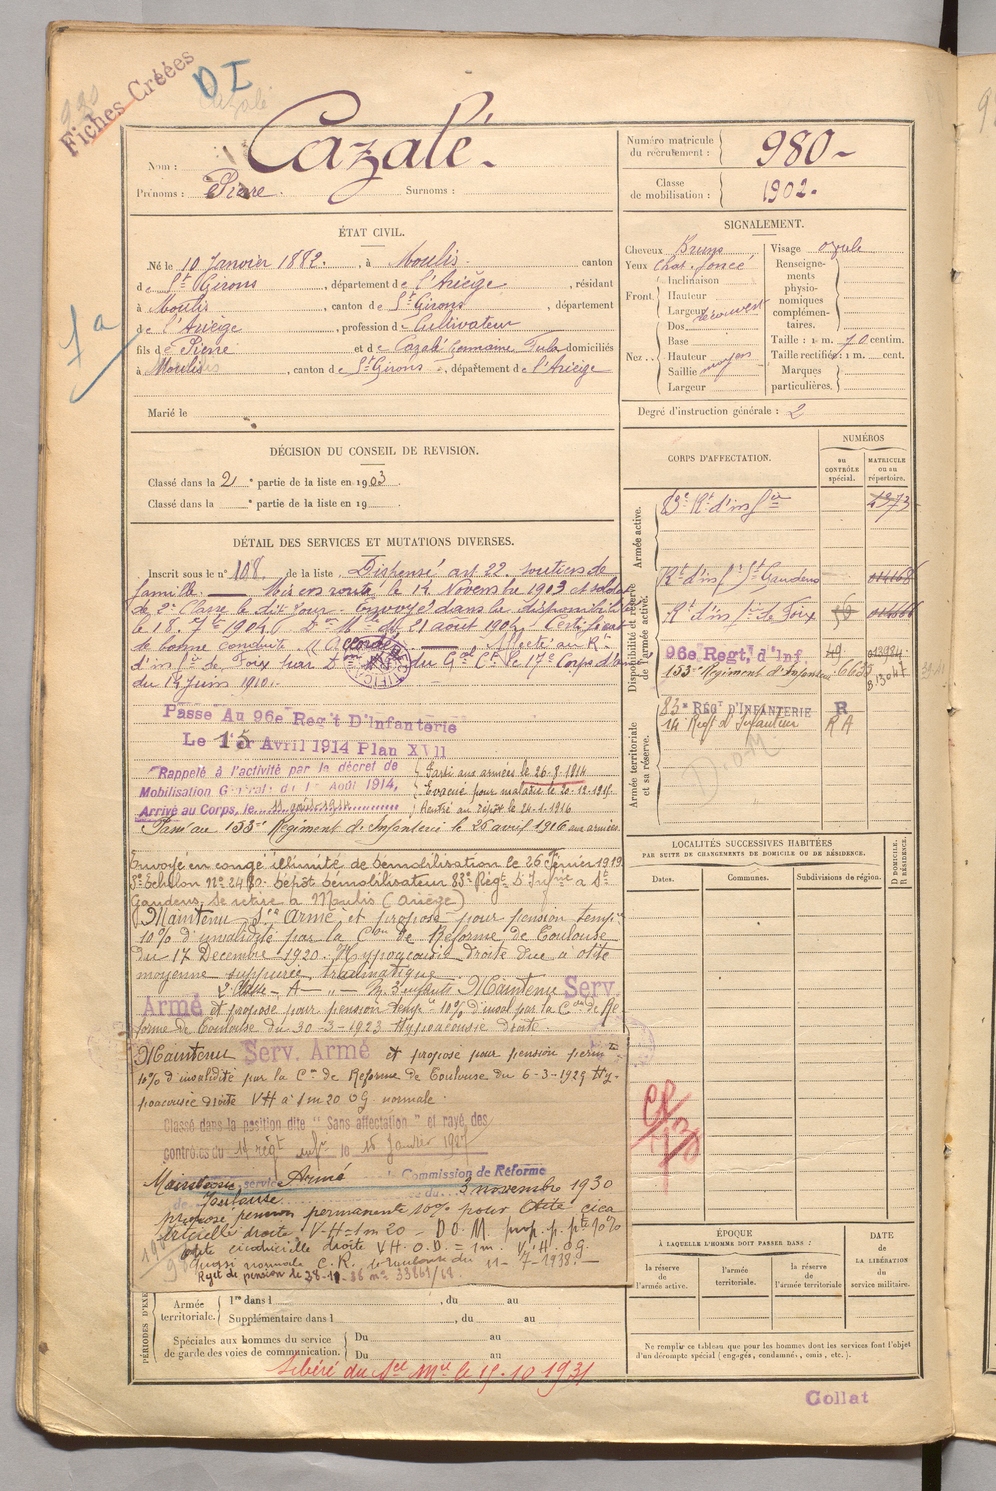 Fiches Créées
D I
Nom : Cazalé.
Prénoms : Pierre. Surnoms :
Numéro matricule du recrutement : 980
Classe de mobilisation : 1902.
ÉTAT CIVIL.
Né le 10 Janvier 1882., à Moulis. canton
de St Girons, département de l'Ariège, résidant
à Moulis, canton de St Girons, département
de l'Ariège, profession de Cultivateur
fils de Pierre et de Cazalé Germaine domiciliés
à Moulis, canton de St Girons, département de l'Ariège
Marié le
1a
SIGNALEMENT.
Cheveux Bruns
Yeux Chat. foncé
Front Inclinaison
Hauteur
Largeur découvert
Dos
Nez Base
Hauteur moyen
Saillie
Largeur
Visage ovale
Renseignements physionomiques complémentaires.
Taille : 1 m. 70 centim.
Taille rectifiée : 1 m. cent.
Marques particulières.
Degré d'instruction générale : 2
DÉCISION DU CONSEIL DE REVISION.
Classé dans la 2e partie de la liste en 1903.
Classé dans la e partie de la liste en 19
DÉTAIL DES SERVICES ET MUTATIONS DIVERSES.
Inscrit sous le n° 108 de la liste Dispensé art 22 soutien de
famille. Mis en route le 14 Novembre 1903 et soldat
de 2e Classe le dit jour. Envoyé dans la disponibilité
le 18 7bre 1904. Don Mlle du 21 août 1904. Certificat
de bonne conduite "Accordé" Affecté au Rt
d'infie de Foix par Don du Gal Ct le 17e Corps d'armée
du 14 Juin 1910.
Passé Au 96e Reg't D'Infanterie
Le 1er Avril 1914 Plan XVII
Rappelé à l'activité par le décret de
Mobilisation Générale du 1er Août 1914,
Arrivé au Corps, le
Parti aux armées le 26-8-1914
Evacué pour maladie le 20-12-1915
Rentré au dépôt le 24-1-1916
Passé au 153e Régiment d'Infanterie le 26 avril 1916 aux armées.
Envoyé en congé illimité de démobilisation le 26 Février 1919
3e Echelon N° 2480. Dépôt démobilisateur 83e Régt D'Infrie à St
Gaudens, se retire à Moulis (Ariège)
Maintenu Sce Armé et proposé pour pension tempre
10% d'invalidité par la Con de Réforme de Toulouse
du 17 Décembre 1920. Hypoacousie droite due à otite
moyenne suppurée traumatique
Maintenu Serv.
Armé et proposé pour pension tempre 10% d'inval par la Con de Ré
forme de Toulouse du 30-3-1923 Hypoacousie droite.
Maintenu Serv. Armé et proposé pour pension permte
10% d'invalidité par la Con de Réforme de Toulouse du 6-3-1929 Hy-
poacousie droite VH à 1m20 OG normale.
Classé dans la position dite "Sans affectation" et rayé des
contrôles du 14 régt infie le 15 janvier 1927
Maintenu service Armé Commission de Réforme
de Toulouse du 3 novembre 1930
proposé pension permanente 10% pour Otite cica
tricielle droite V-H = 1m 20 - D.O.M. prop. p. pte 10%
otite cicatricielle droite VH. O.D. = 1m. V.H. OG.
quasi normale C.R. de Toulouse du 11-7-1938.
CORPS D'AFFECTATION.
NUMÉROS
au CONTRÔLE spécial.
MATRICULE ou au répertoire.
Armée active.
83e Rt d'infie 4973
Disponibilité et réserve de l'armée active.
Rt d'inf St Gaudens
Rt d'inf de Foix
96e Regt, d'Inf
153e Régiment d'Infanterie 6655
Armée territoriale et sa réserve.
83e RÉGT D'INFANTERIE R
14 Régt d'Infanterie R A
D.O.M
LOCALITÉS SUCCESSIVES HABITÉES
PAR SUITE DE CHANGEMENTS DE DOMICILE OU DE RÉSIDENCE.
Dates.
Communes.
Subdivisions de région.
D DOMICILE. R RÉSIDENCE.
ÉPOQUE
À LAQUELLE L'HOMME DOIT PASSER DANS :
la réserve de l'armée active.
l'armée territoriale.
la réserve de l'armée territoriale
DATE de LA LIBÉRATION du service militaire.
PÉRIODES D'EXE
Armée territoriale. 1re dans l , du au
Supplémentaire dans l , du au
Spéciales aux hommes du service de garde des voies de communication. Du au
Du au
Libéré du Sce Mre le 15.10 1931
Ne remplir ce tableau que pour les hommes dont les services font l'objet
d'un décompte spécial (engagés, condamnés, omis, etc.).
Collat